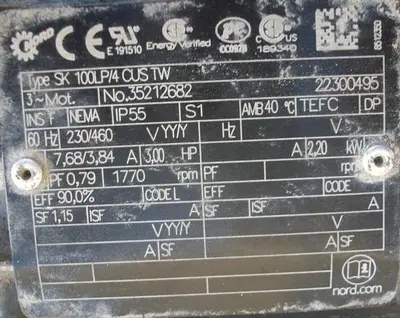 NORD CE UR US E 191510 Energy Verified CC092B 189340 8512350
Type SK 100LP/4 CUS TW 22300495
3~Mot. No. 35212682
INS F NEMA IP55 S1 AMB 40 °C TEFC DP
60 Hz 230/460 V YY/Y Hz V
7,68/3,84 A 3,00 HP A 2,20 kW
PF 0,79 1770 rpm PF rpm
EFF 90,0% CODE L EFF CODE
SF 1,15 ISF A SF ISF A
V YY/Y V
A SF A SF
nord.com